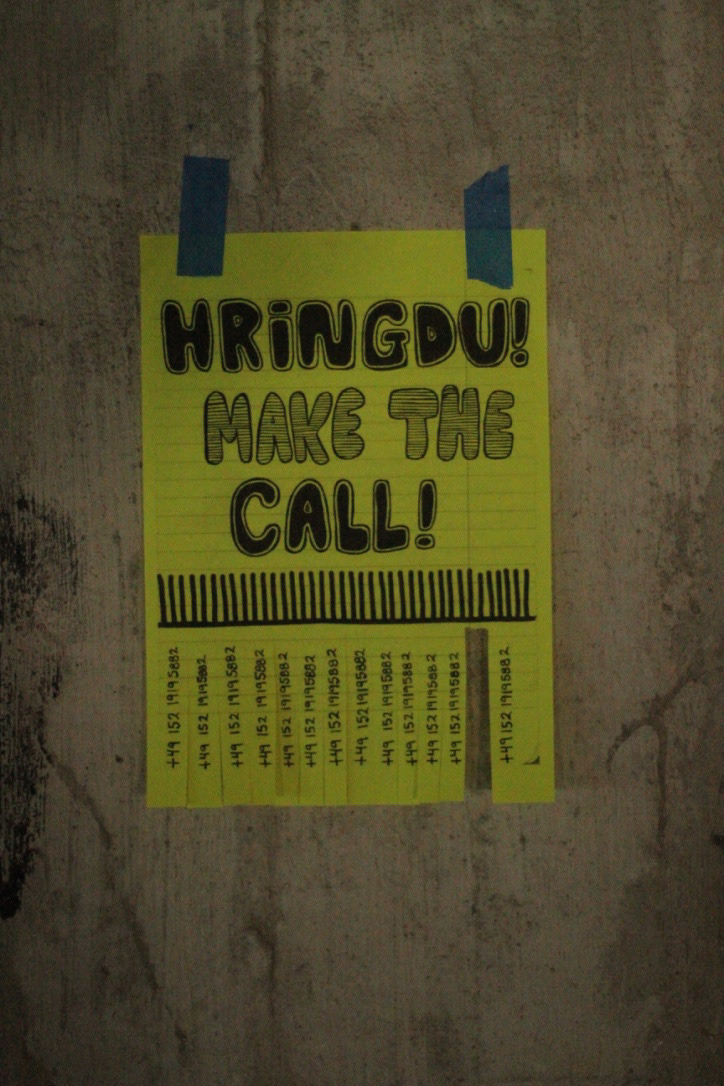 HRiNGDU!
MAKE THE
CALL!
+49 152 19195882
+49 152 19195882
+49 152 19195882
+49 152 19195882
+49 152 19195882
+49 152 19195882
+49 152 19195882
+49 152 19195882
+49 152 19195882
+49 152 19195882
+49 152 19195882
+49 152 19195882
+49 152 19195882